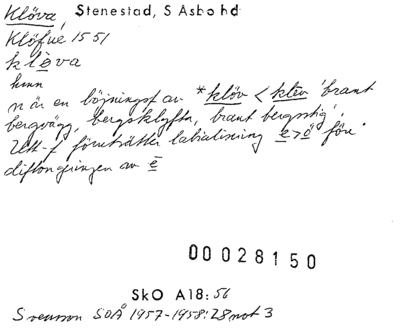 Klöva, Stenestad, S Asbo hd
Klöfue 1551
klèva
hmn
n är en böjningsf av *klöv < klēv 'brant
bergvägg, bergsklyfta, brant bergsstig'.
Utt-f företräder labialisering e > ö före
diftongeringen av ē
00028150
SkO A18: 56
Svensson SOÅ 1957-1958: 28 not 3